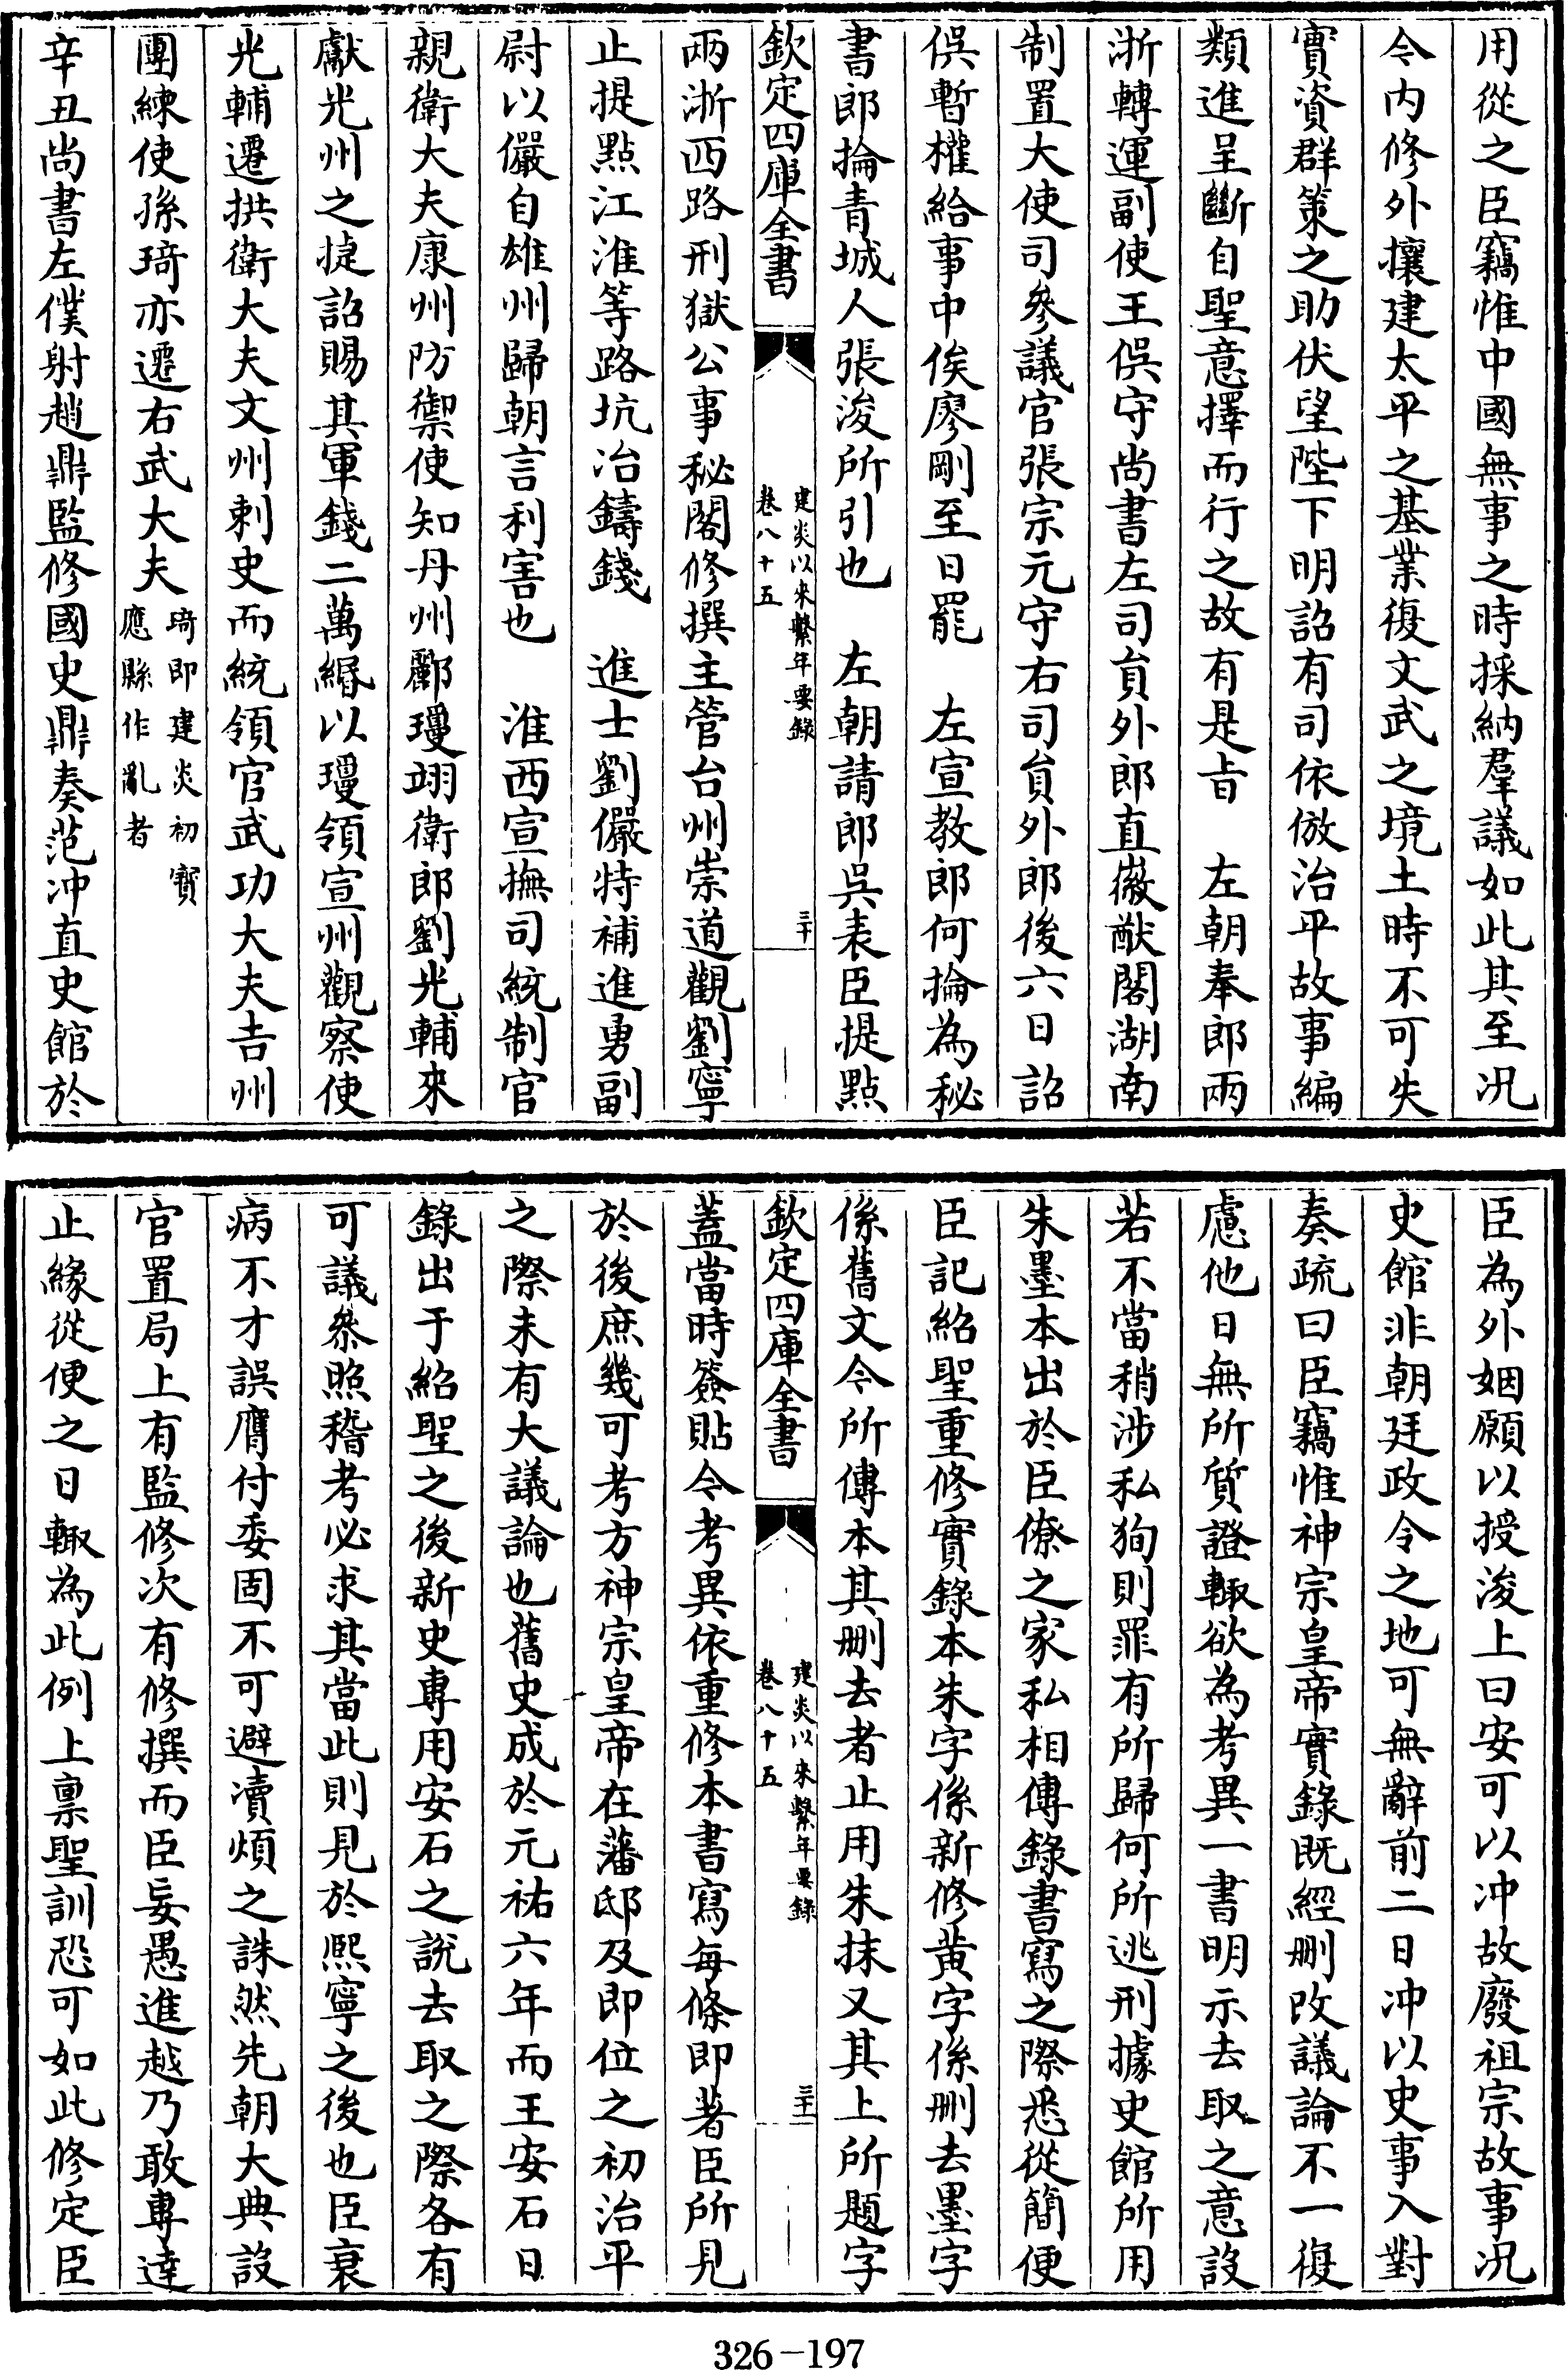 用從之臣竊惟中國無事之時採納羣議如此其至況
今内修外攘建太平之基業復文武之境土時不可失
實資群策之助伏望陛下明詔有司依倣治平故事編
類進呈斷自聖意擇而行之故有是旨　左朝奉郎兩
浙轉運副使王俁守尚書左司貟外郎直徽猷閣湖南
制置大使司參議官張宗元守右司貟外郎後六日詔
俁暫權給事中俟廖剛至日罷　左宣教郎何掄為秘
書郎掄青城人張浚所引也　左朝請郎吳表臣提點
欽定四庫全書
建炎以來繫年要錄
卷八十五
三十
兩浙西路刑獄公事秘閣修撰主管台州崇道觀劉寧
止提點江淮等路坑冶鑄錢　進士劉儼特補進勇副
尉以儼自雄州歸朝言利害也　淮西宣撫司統制官
親衛大夫康州防禦使知丹州酈瓊翊衛郎劉光輔來
獻光州之捷詔賜其軍錢二萬緡以瓊領宣州觀察使
光輔遷拱衛大夫文州刺史而統領官武功大夫吉州
團練使孫琦亦遷右武大夫琦即建炎初寳
應縣作亂者
辛丑尚書左僕射趙鼎監修國史鼎奏范冲直史館於
臣為外姻願以授浚上曰安可以冲故廢祖宗故事況
史館非朝廷政令之地可無辭前二日冲以史事入對
奏疏曰臣竊惟神宗皇帝實錄既經刪改議論不一復
慮他日無所質證輙欲為考異一書明示去取之意設
若不當稍涉私狥則罪有所歸何所逃刑據史館所用
朱墨本出於臣僚之家私相傳錄書寫之際悉從簡便
臣記紹聖重修實錄本朱字係新修黄字係刪去墨字
係舊文今所傳本其刪去者止用朱抹又其上所題字
欽定四庫全書
建炎以來繫年要錄
卷八十五
三十一
蓋當時簽貼今考異依重修本書寫每條即著臣所見
於後庶幾可考方神宗皇帝在藩邸及即位之初治平
之際未有大議論也舊史成於元祐六年而王安石日
錄出于紹聖之後新史專用安石之說去取之際各有
可議叅照稽考必求其當此則見於熙寧之後也臣衰
病不才誤膺付委固不可避瀆煩之誅然先朝大典設
官置局上有監修次有修撰而臣妄愚進越乃敢專達
止緣從便之日輙為此例上禀聖訓恐可如此修定臣
326-197